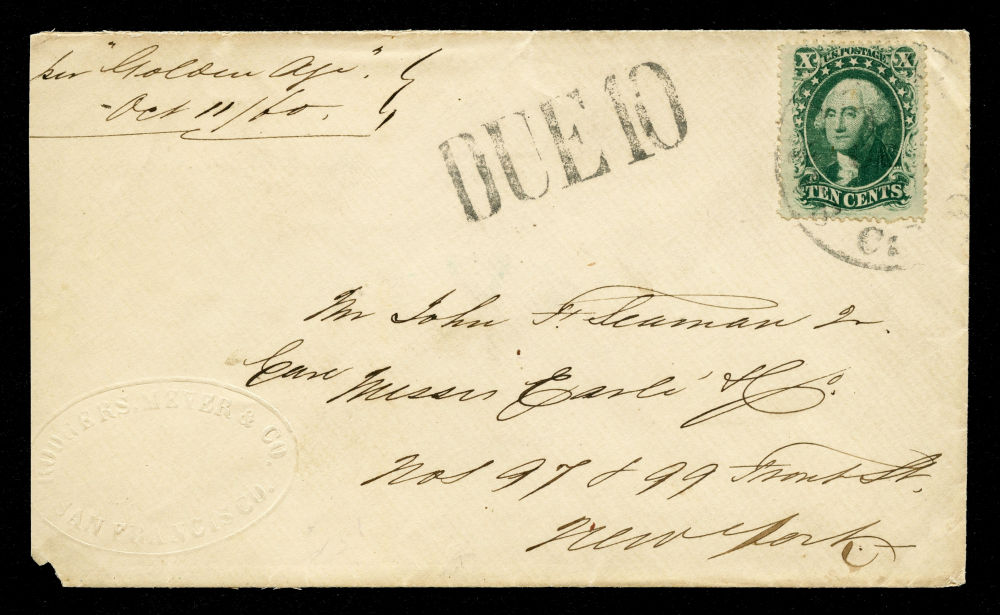 per "Golden Age".
Oct 11/60.
DUE 10
X U.S. POSTAGE X
TEN CENTS
Mr John F. Seaman Jr.
Care Messrs Earle & Co.
Nos 97 & 99 Front St.
New York
RODGERS, MEYER & CO.
SAN FRANCISCO.